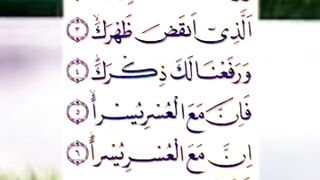 الَّذِىۡۤ اَنۡقَضَ ظَهۡرَكَۙ‏ ﴿۳﴾
وَرَفَعۡنَا لَكَ ذِكۡرَكَؕ‏ ﴿۴﴾
فَاِنَّ مَعَ الۡعُسۡرِ يُسۡرًاۙ‏ ﴿۵﴾
اِنَّ مَعَ الۡعُسۡرِ يُسۡرًاؕ‏ ﴿۶﴾